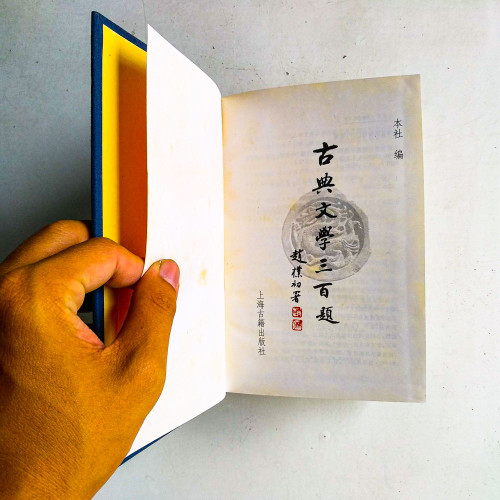 本社 编
古典文学三百题
赵朴初署
上海古籍出版社